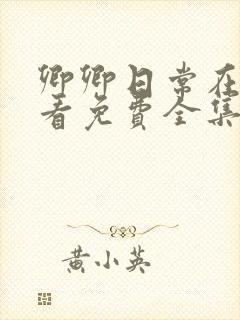 卿卿日常在
看免费全集
黄小英